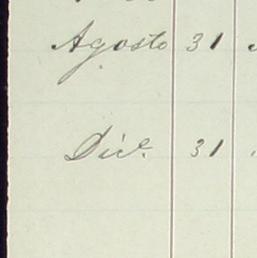 Agosto 31
Dic. 31